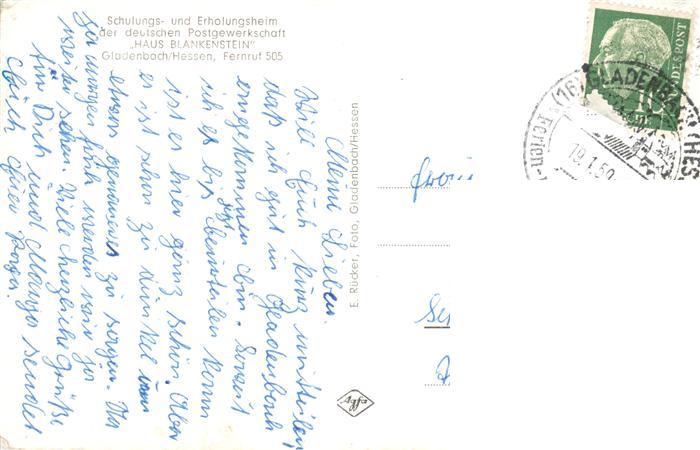 Schulungs- und Erholungsheim
der deutschen Postgewerkschaft
„HAUS BLANKENSTEIN"
Gladenbach/Hessen, Fernruf 505
Meine Lieben.
Will Euch kurz mitteilen,
daß ich gut in Gladenbach
eingekommen bin. Soweit
ich es bis jetzt beurteilen kann
ist es hier ganz schön. Aber
es ist schon zu dunkel um
etwas genaueres zu sagen. Na
morgen früh werden wir ja
weiter sehen. Viele herzliche Grüße
für Dich und sendet
Euch Euer
E. Rücker, Foto, Gladenbach/Hessen
Agfa
10
DESPOST
(16) GLADENBACH (HES
Ferien-
19.1.59